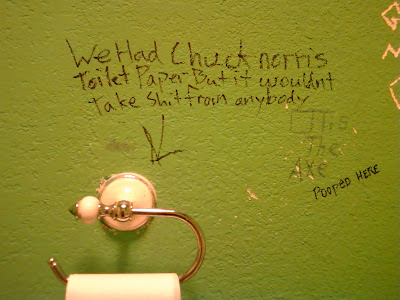 We Had Chuck norris
Toilet Paper But it wouldnt
Take Shit from anybody
Otis
The
Axe
POOPED HERE